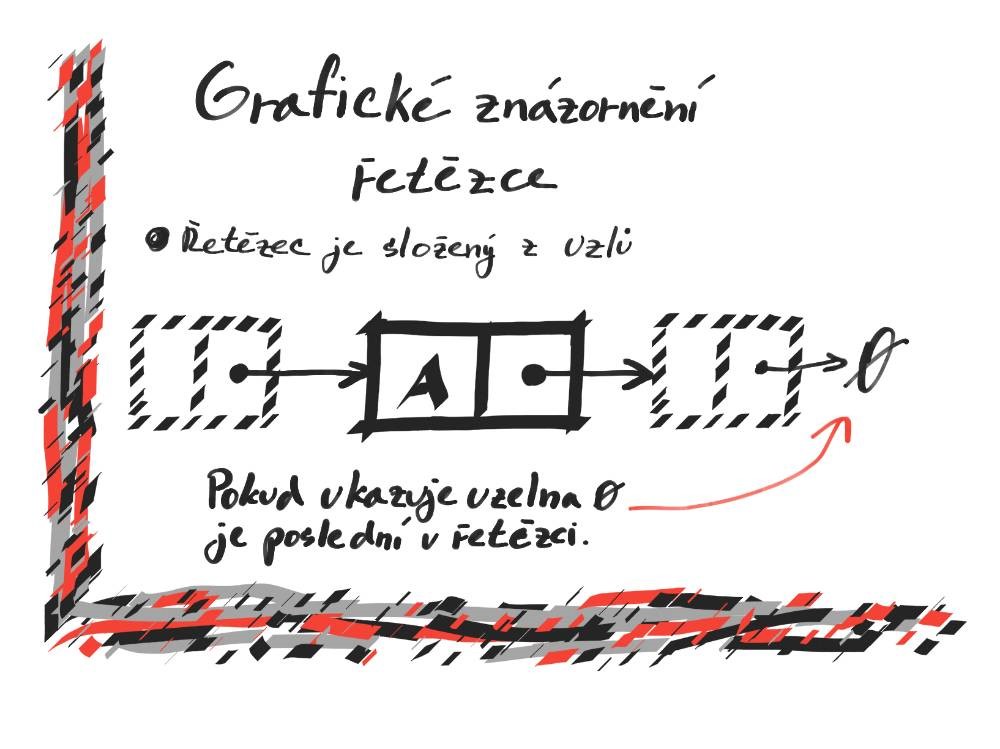 Grafické znázornění
řetězce
Řetězec je složený z uzlů
A
Ø
Pokud ukazuje uzel na Ø
je poslední v řetězci.